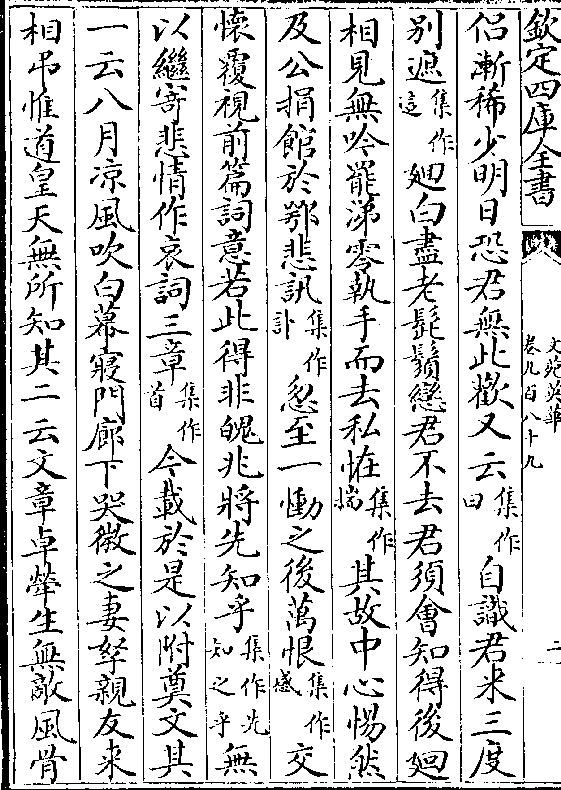 欽定四庫全書
文苑英華
卷九百八十九
二
侣漸稀少明日恐君無此歡又云集作曰自識君来三度
别遮集作這廻白盡老髭鬚戀君不去君須會知得後廻
相見無吟罷涕零執手而去私恠集作揣其故中心惕然
及公捐館於鄂悲訊集作訃忽至一慟之後萬恨集作感交
懐覆視前篇詞意若此得非魄兆將先知乎集作先知之乎無
以繼寄悲情作哀詞三章集作首今載於是以附奠文其
一云八月凉風吹白幕寢門廊下哭微之妻孥親友来
相弔惟道皇天無所知其二云文章卓犖生無敵風骨